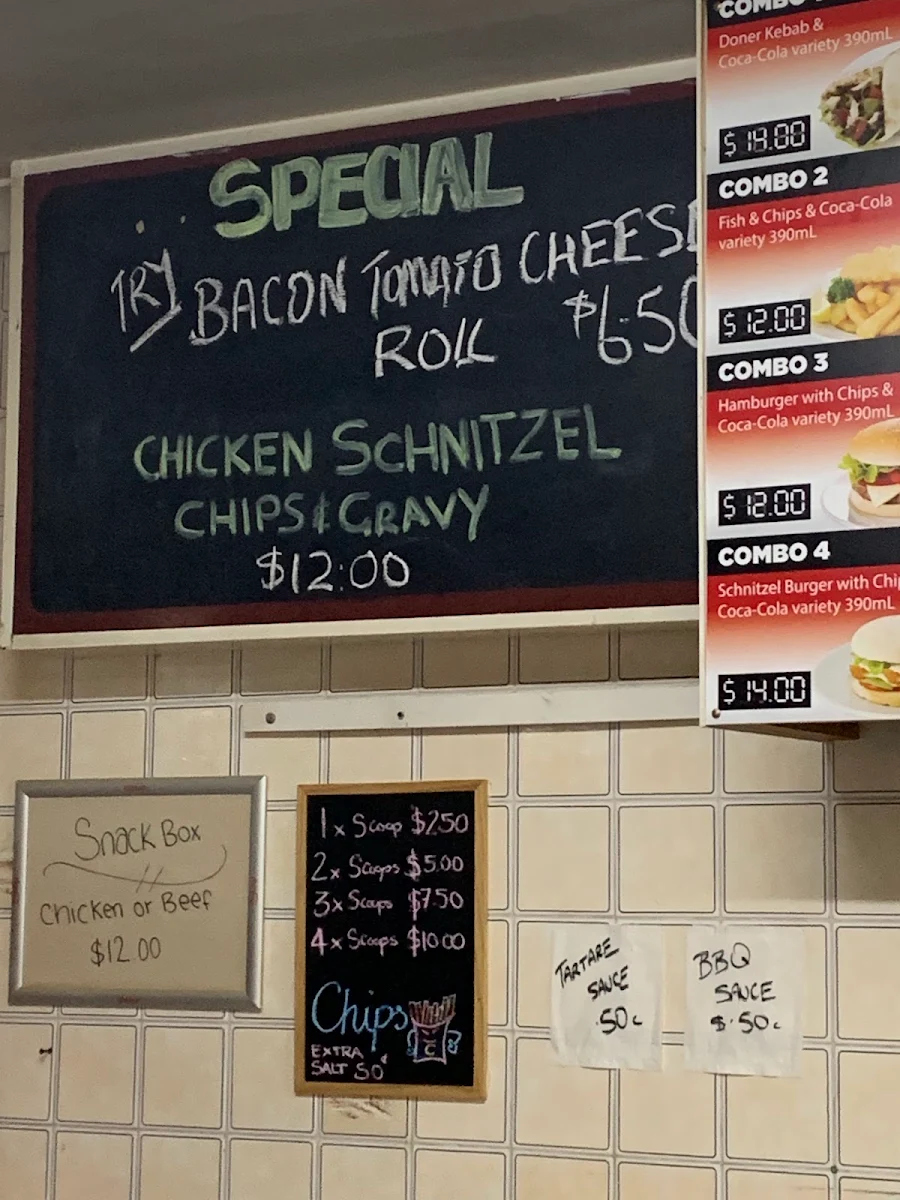 SPECIAL
TRY BACON TOMATO CHEESE
ROLL $6.50
CHICKEN SCHNITZEL
CHIPS & GRAVY
$12:00
COMBO
Doner Kebab &
Coca-Cola variety 390mL
COMBO 2
Fish & Chips & Coca-Cola
variety 390mL
$12.00
COMBO 3
Hamburger with Chips &
Coca-Cola variety 390mL
COMBO 4
Schnitzel Burger with Chi
Coca-Cola variety 390mL
$14.00
Snack Box
Chicken or Beef
$12.00
1x Scoop $2.50
2x Scoops $5.00
3x Scoops $7.50
4x Scoops $10.00
Chips
EXTRA
SALT 50¢
TARTARE
SAUCE
.50c
BBQ
SAUCE
$.50c